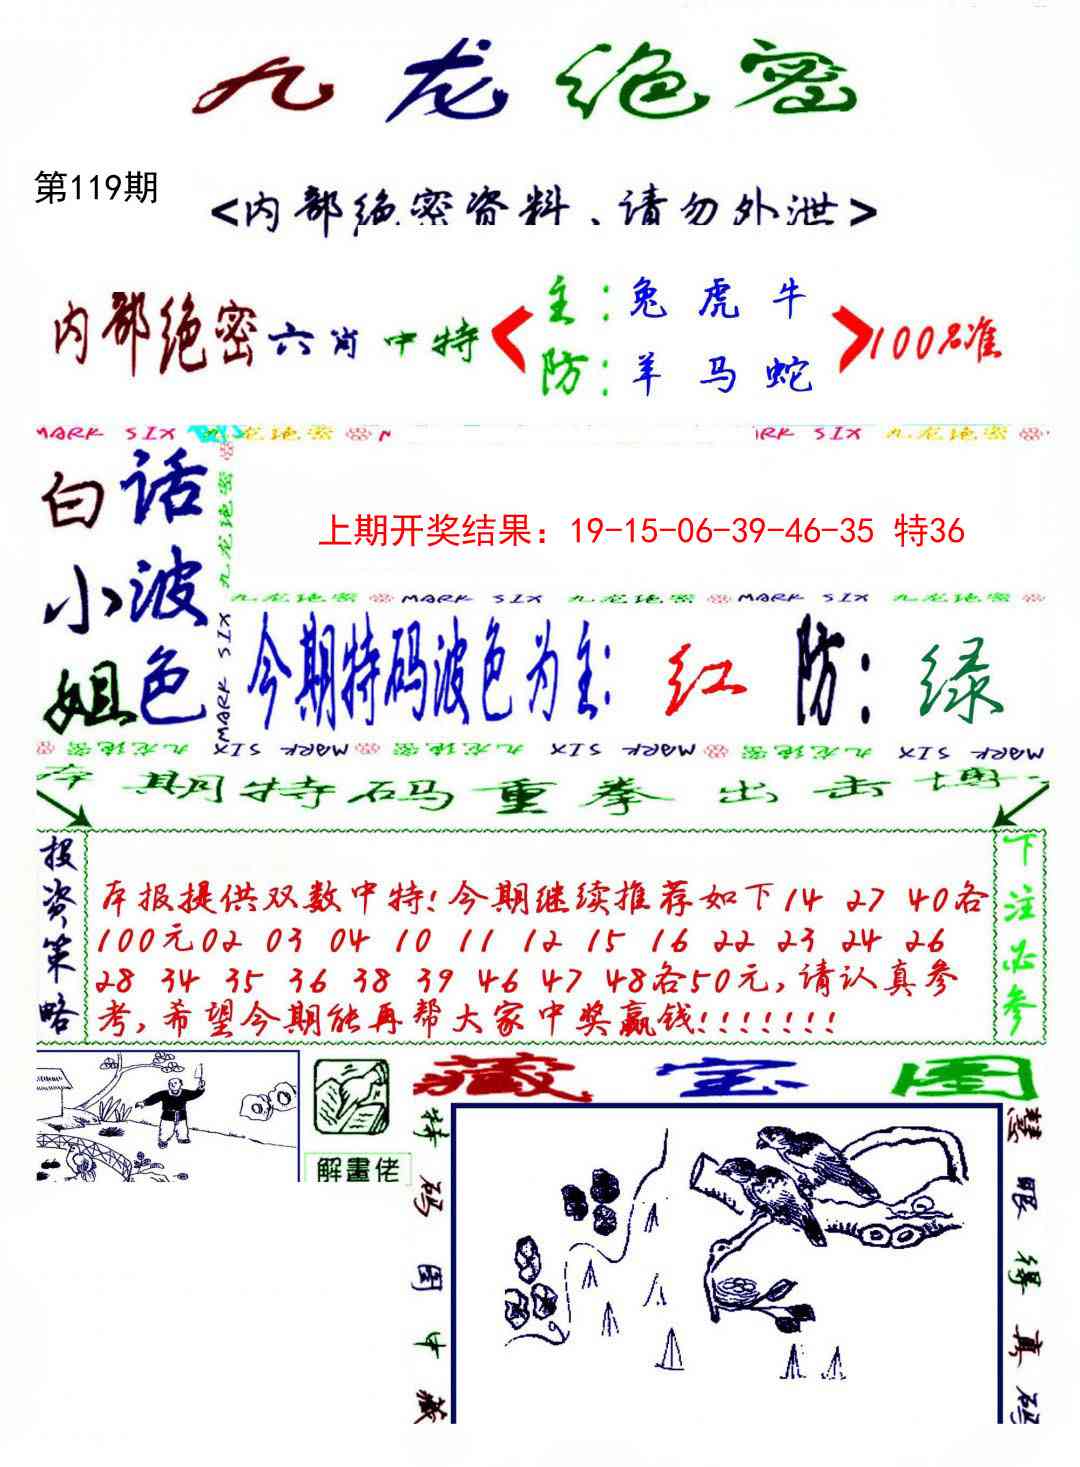 九龙绝密
第119期
<内部绝密资料、请勿外泄>
内部绝密六肖中特
主:兔 虎 牛
防:羊 马 蛇
100%准
MARK SIX 九龙绝密
MARK SIX 九龙绝密
白小姐
话波色
九龙绝密
MARK SIX
上期开奖结果：19-15-06-39-46-35 特36
九龙绝密 MARK SIX 九龙绝密 MARK SIX 九龙绝密
今期特码波色为主: 红 防: 绿
九龙绝密 MARK SIX MARK SIX 九龙绝密 MARK SIX MARK SIX 九龙绝密 MARK SIX MARK SIX
本期特码重拳出击博
投资策略
本报提供双数中特!今期继续推荐如下14 27 40各
100元02 03 04 10 11 12 15 16 22 23 24 26
28 34 35 36 38 39 46 47 48各50元,请认真参
考,希望今期能再帮大家中奖赢钱!!!!!!!
下注必参
解畫佬
藏宝图
特码图中藏
慧眼得真码